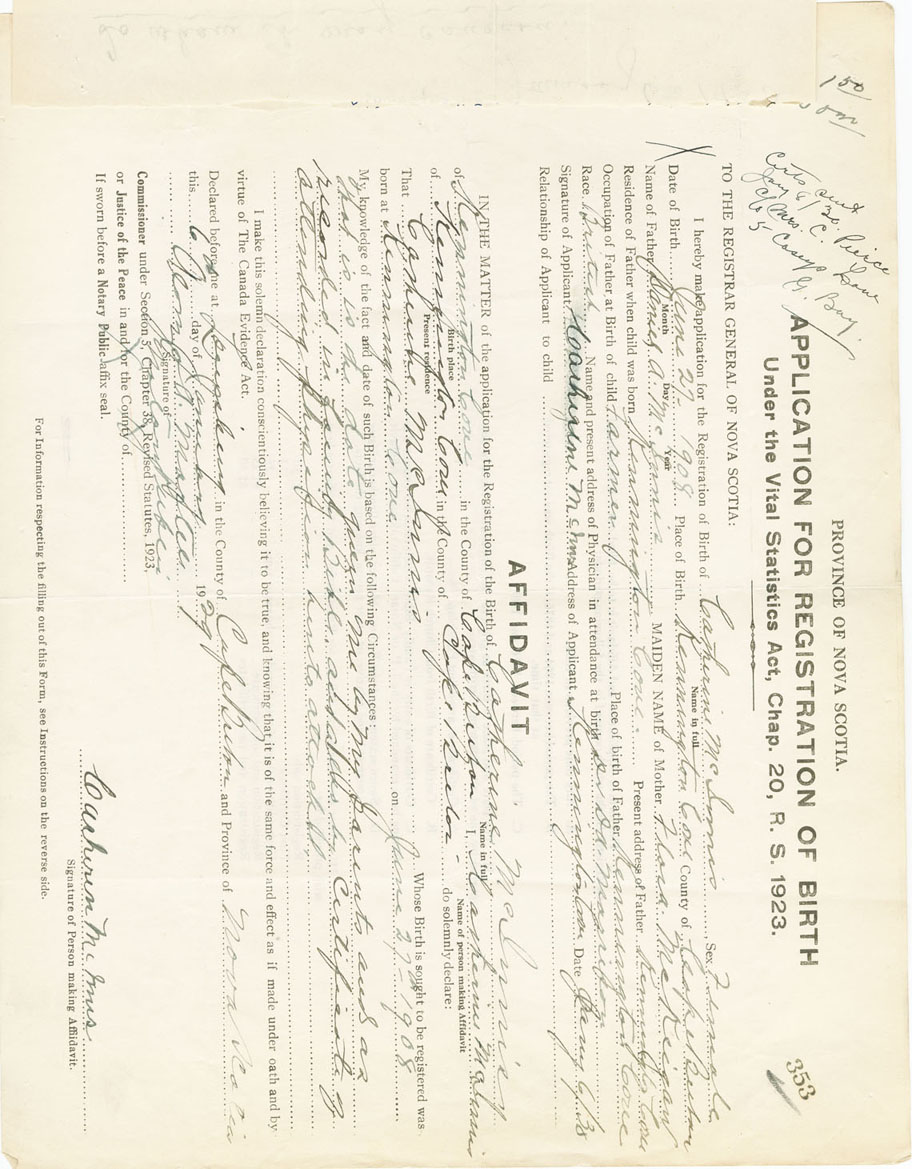 353
PROVINCE OF NOVA SCOTIA.
APPLICATION FOR REGISTRATION OF BIRTH
Under the Vital Statistics Act, Chap. 20, R. S. 1923.
1 50
Certs sent
30.
Mrs. C. Pierce
Lane
G Bay
TO THE REGISTRAR GENERAL OF NOVA SCOTIA:
I hereby make application for the Registration of Birth of Catherine McInnis Sex Female
Name in full
Date of Birth June 27 1908 Place of Birth Kennington Cove County of Cape Breton
Month Day Year
X
Name of Father A. McInnis MAIDEN NAME of Mother Flora McKeigan
Residence of Father when child was born Kennington Cove Present address of Father Kennington Cove
Occupation of Father at Birth of child Farmer Place of birth of Father Kennington Cove
Race Name and present address of Physician in attendance at birth
Signature of Applicant McInnis Address of Applicant Kennington Date
Relationship of Applicant to child
AFFIDAVIT
IN THE MATTER of the application for the Registration of the Birth of Catherine McInnis
Name in full
of Kennington Cove in the County of Cape Breton I, McInnis
Birth place Name of person making Affidavit
of Kennington Cove in the County of Cape Breton do solemnly declare:
Present residence
That Catherine McInnis Whose Birth is sought to be registered was
born at Kennington Cove on June 27th 1908
My knowledge of the fact and date of such Birth is based on the following Circumstances:
that is the date given me by my Parents and as
recorded in Family Bible, and also by Certificate of
attending Physician hereto attached
I make this solemn declaration conscientiously believing it to be true, and knowing that it is of the same force and effect as if made under oath and by
virtue of The Canada Evidence Act.
Declared before me at Louisburg in the County of Cape Breton and Province of Nova Scotia
this 6 day of 19 29
Signature of
Commissioner under Section 5, Chapter 38, Revised Statutes, 1923,
or Justice of the Peace in and for the County of
If sworn before a Notary Public affix seal.
Catherin McInnis
Signature of Person making Affidavit.
For Information respecting the filling out of this Form, see Instructions on the reverse side.